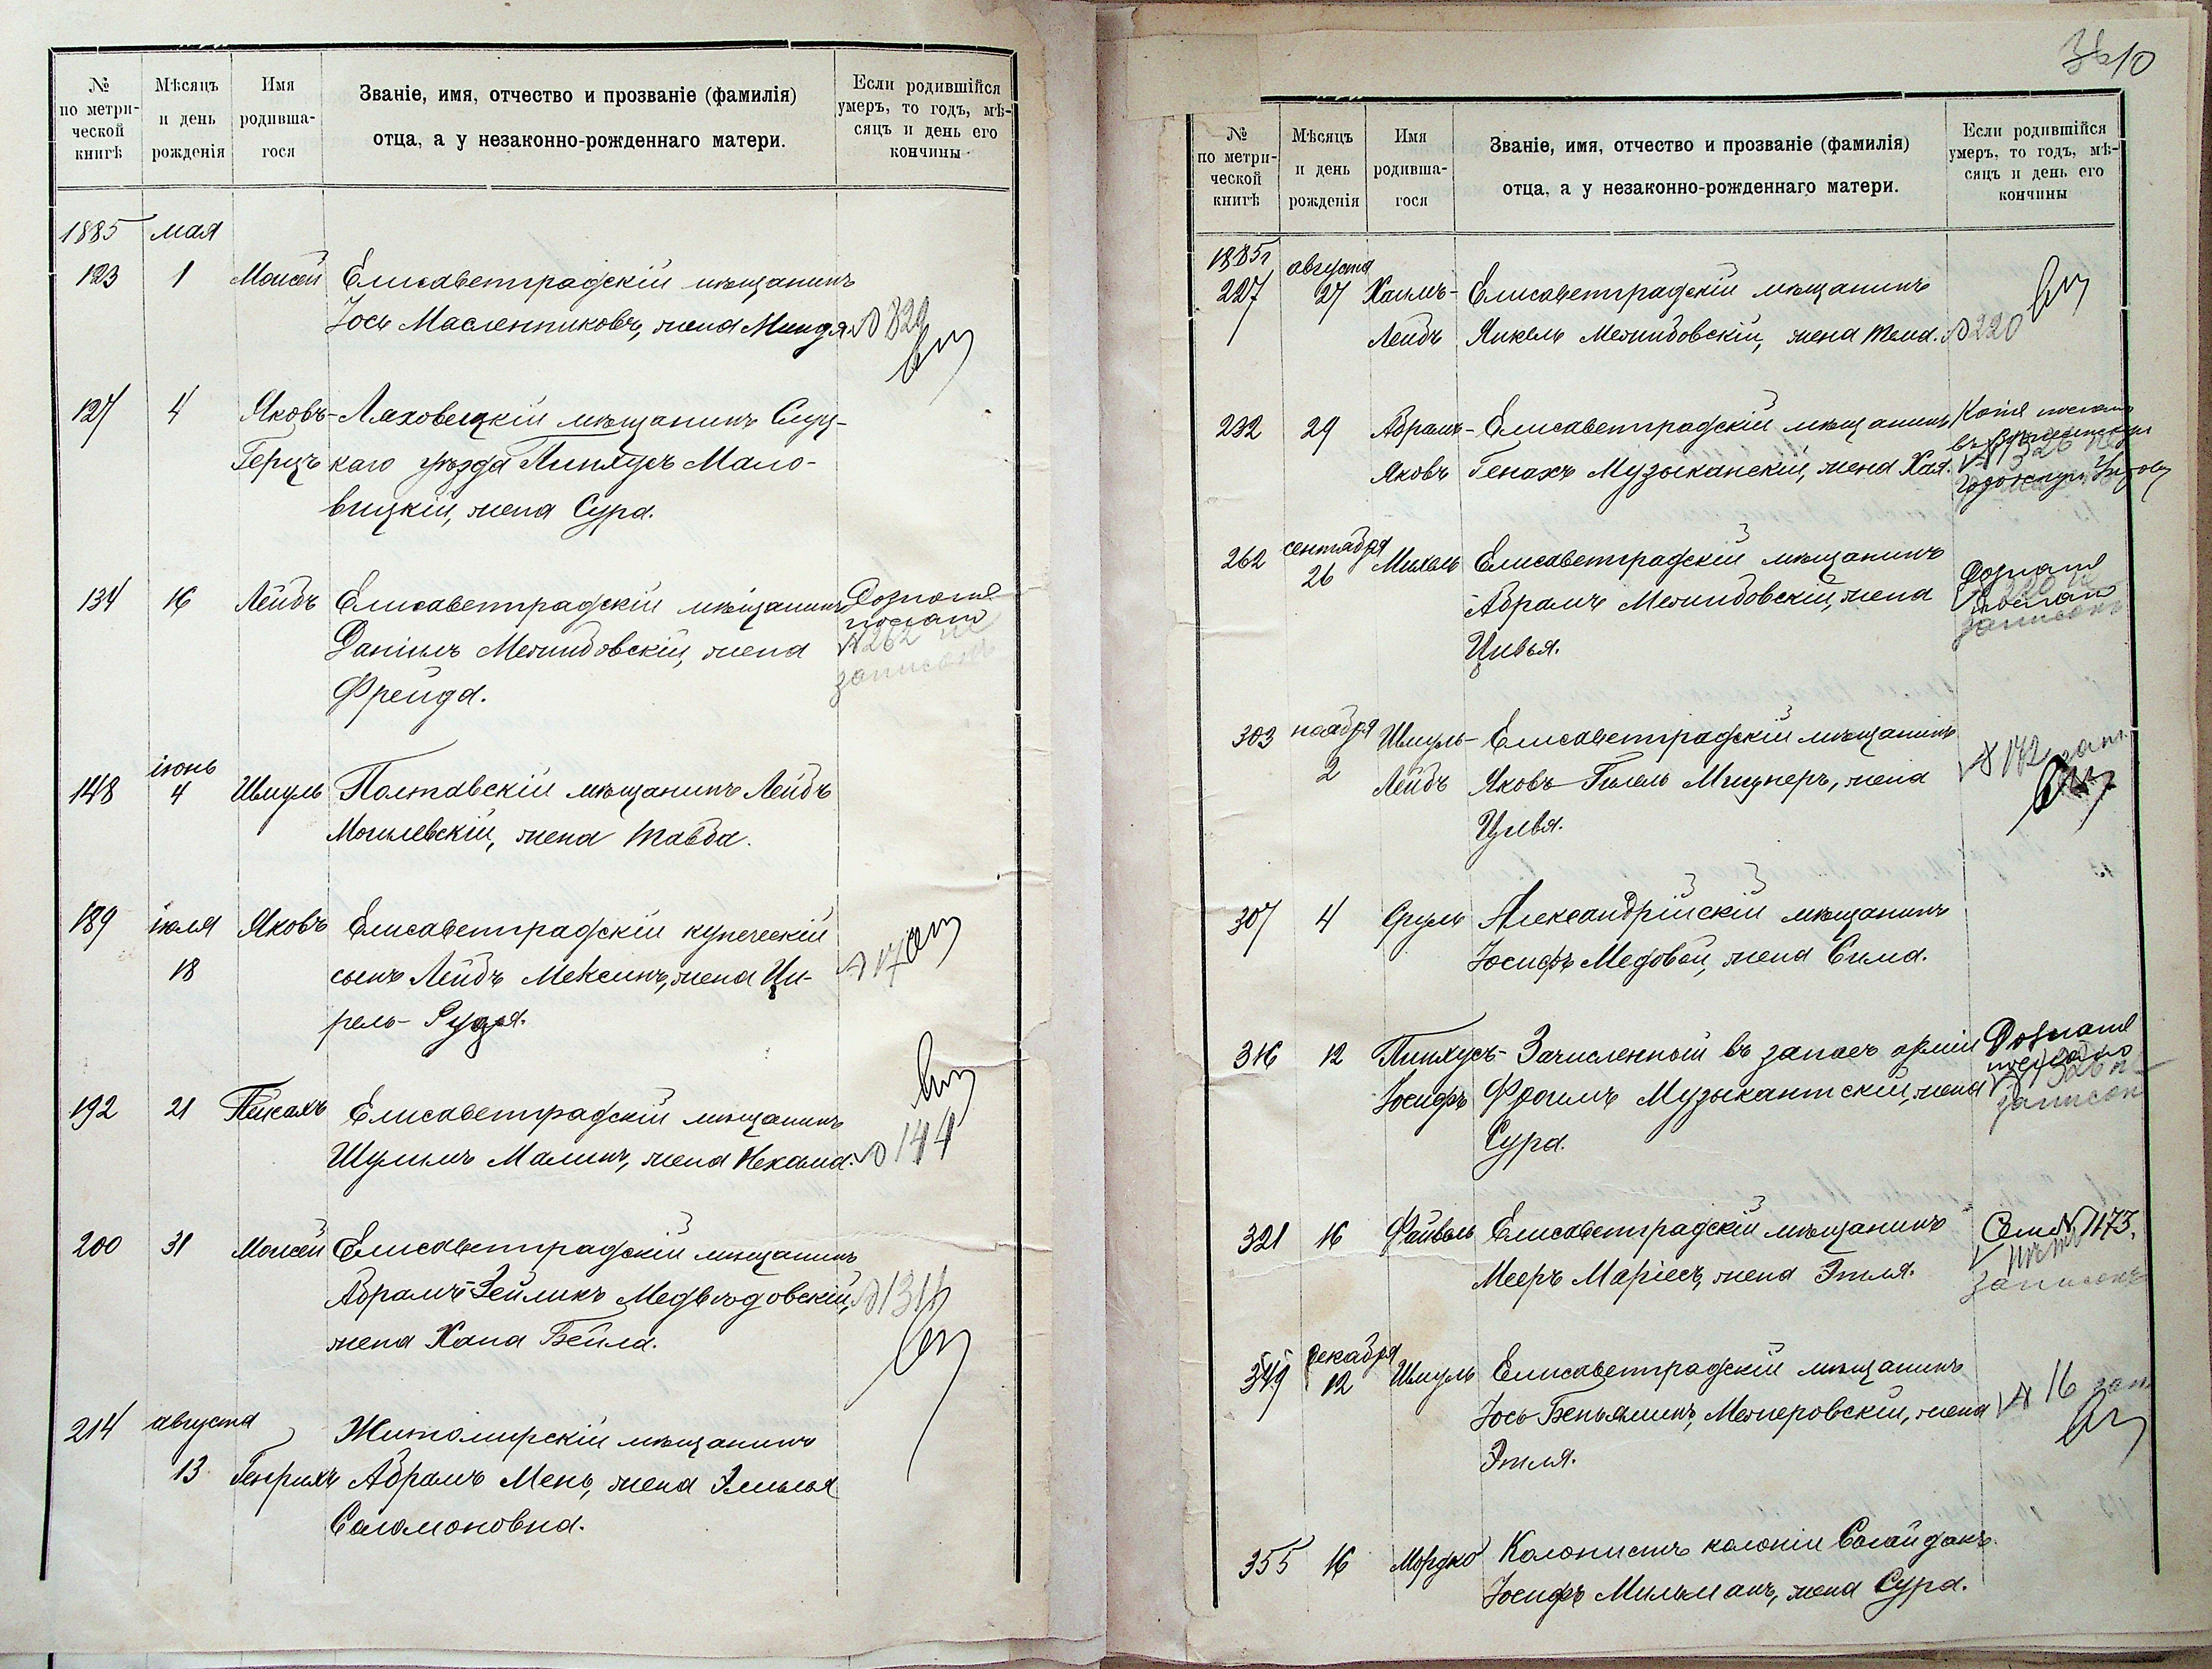 №
по метри-
ческой
книгѣ
Мѣсяцъ
и день
рожденія
Имя
родивша-
гося
Званіе, имя, отчество и прозваніе (фамилія)
отца, а у незаконно-рожденнаго матери.
Если родившійся
умеръ, то годъ, мѣ-
сяцъ и день его
кончины
1885 мая
123 1 Моисей Елисаветградскій мѣщанинъ
Іось Масленниковъ, жена Миндя. № 329
127 4 Яковъ- Ляховецкій мѣщанинъ Слуц-
Герцъ каго уѣзда Пинхусъ Мало-
вицкій, жена Сура.
134 16 Лейбъ Елисаветградскій мѣщанинъ Дознаніе
послано
Даніилъ Межибовскій, жена № 262 не
Фрейда. записанъ
іюнь
148 4 Шмуль Полтавскій мѣщанинъ Лейбъ
Могилевскій, жена Тавба.
189 іюля Яковъ Елисаветградскій купеческій
18 сынъ Лейбъ Мексинъ, жена Ци-
рель-Рудя.
192 21 Пейсахъ Елисаветградскій мѣщанинъ
Шулимъ Малинъ, жена Нехама. № 144
200 31 Моисей Елисаветградскій мѣщанинъ
Абрамъ-Зейликъ Медвѣдовскій,
жена Хана Бейла.
214 августа Житомирскій мѣщанинъ
13 Генрихъ Абрамъ Мень, жена Эмилія
Соломоновна.
10
№
по метри-
ческой
книгѣ
Мѣсяцъ
и день
рожденія
Имя
родивша-
гося
Званіе, имя, отчество и прозваніе (фамилія)
отца, а у незаконно-рожденнаго матери.
Если родившійся
умеръ, то годъ, мѣ-
сяцъ и день его
кончины
1885 г августа
227 27 Хаимъ- Елисаветградскій мѣщанинъ
Лейбъ Янкель Межибовскій, жена Тема. № 220
232 29 Абрамъ- Елисаветградскій мѣщанинъ Копія послана
Яковъ Генахъ Музыканскій, жена Хая. № 326 не
262 сентября Михель Елисаветградскій мѣщанинъ
26 Абрамъ Межибовскій, жена Дознаніе
послано
Цивья. записанъ
303 ноября Шмуль- Елисаветградскій мѣщанинъ
2 Лейбъ Яковъ-Гилель Мицнеръ, жена № 172 зап.
Цивя.
307 4 Сруль Александрійскій мѣщанинъ
Іосифъ Медовой, жена Сима.
316 12 Пинхусъ- Зачисленный въ запасъ арміи Дознаніе
послано
Іосифъ Фроимъ Музыкантскій, жена № 326 н-
Сура. записан
321 16 Файвель Елисаветградскій мѣщанинъ
Мееръ Маріесъ, жена Этля. записанъ
349 декабря Шмуль Елисаветградскій мѣщанинъ
12 Іось Беньяминъ Межеровскій, жена № 16 зап
Этля.
355 16 Мордко Колонистъ колоніи Сагайдакъ
Іосифъ Мильманъ, жена Сура.